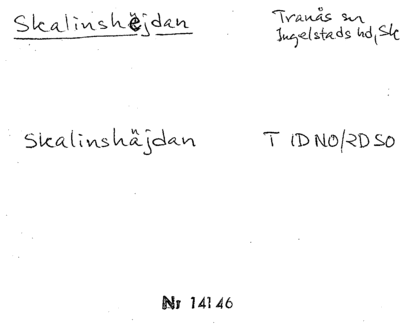 Skalinshëjdan
Tranås sn
Ingelstads hd, Sk
Skalinshäjdan
T 1D NO/2D SO
Nr 14146